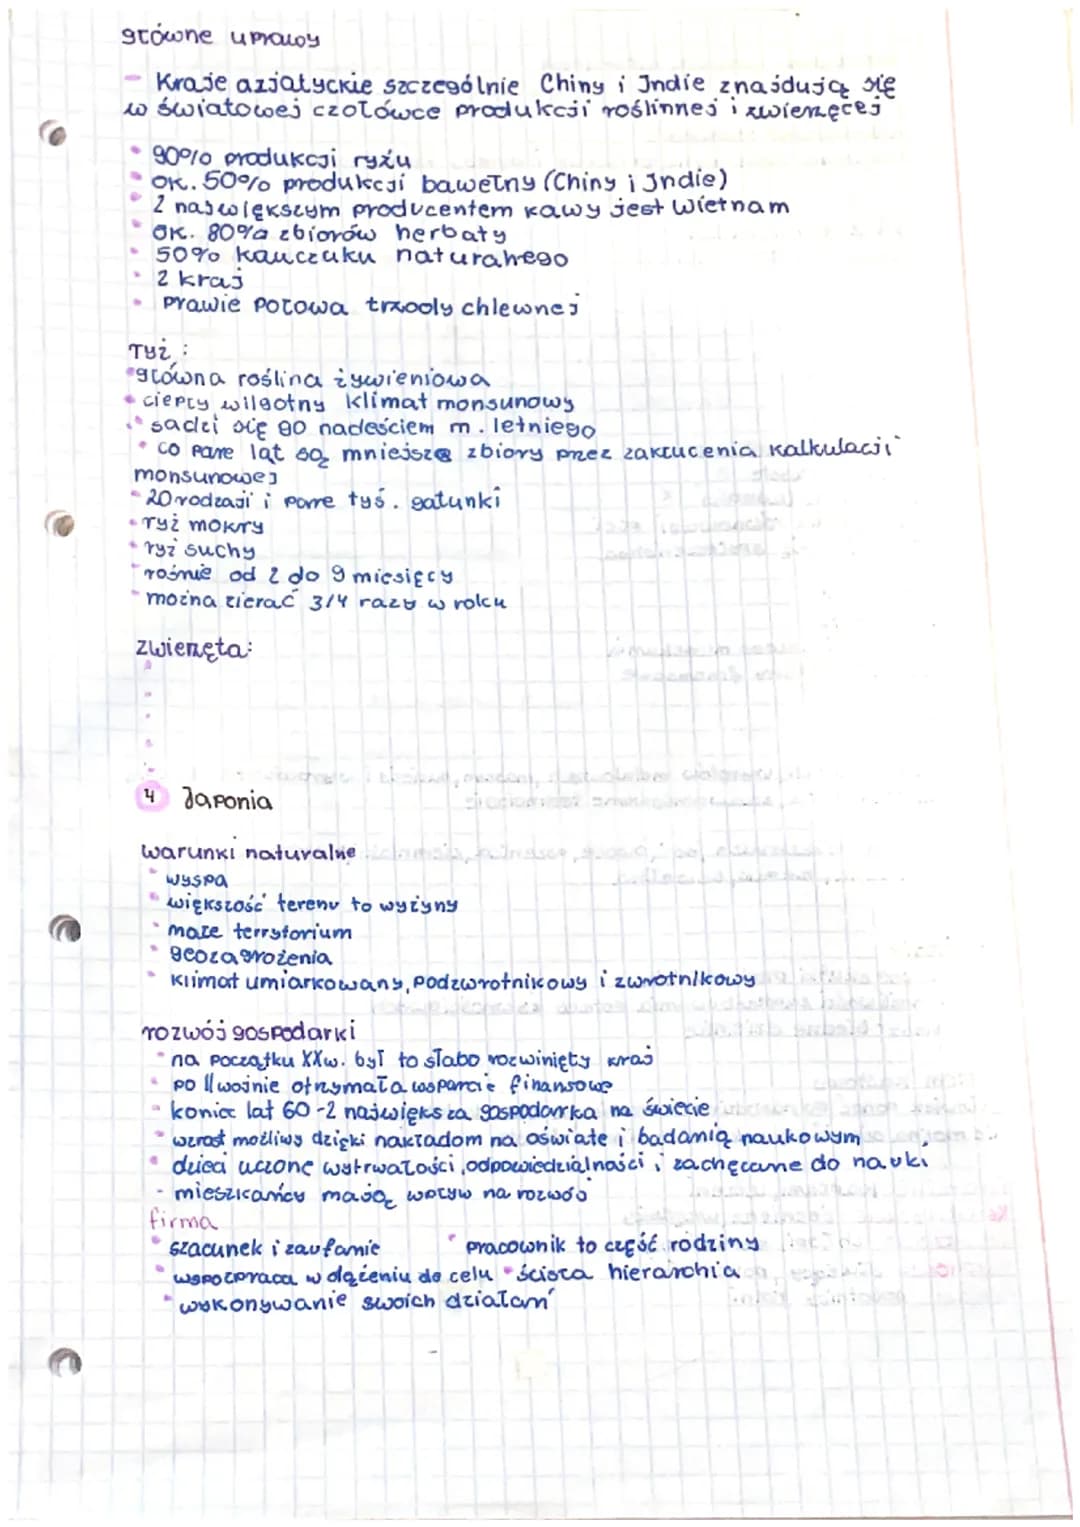 główne uprawy
- Kraje azjatyckie szczególnie Chiny i Indie znajdują się
w światowej czołówce produkcji roślinnej i zwierzęcej
• 90% produkcji ryżu
• ok. 50% produkcji bawełny (Chiny i Indie)
• 2 największym producentem kawy jest Wietnam
• ok. 80% zbiorów herbaty
• 50% kauczuku naturalnego
• 2 kraj
• prawie połowa trzody chlewnej
ryż:
• główna roślina żywieniowa
• ciepły wilgotny klimat monsunowy
• sadzi się go nadejściem m. letniego
• co pare lat są mniejsze zbiory przez zakłucenia kalkulacji
monsunowej
• 20 rodzaji i pare tyś. gatunki
• ryż mokry
• ryż suchy
• rośnie od 2 do 9 miesięcy
• można zierać 3/4 razy w roku
zwierzęta:
4 Japonia
warunki naturalne
• wyspa
• większość terenu to wyżyny
• małe terrytorium
• geozagrożenia
• klimat umiarkowany, podzwrotnikowy i zwrotnikowy
rozwój gospodarki
• na początku XXw. był to słabo rozwinięty kraj
• po II wojnie otrzymała wsparcie finansowe
• koniec lat 60 - 2 największa gospodarka na świecie
• wzrost możliwy dzięki nakładom na oświate i badanią naukowym
• dzieci uczone wytrwałości, odpowiedzialności i zachęcane do nauki
- mieszkańcy mają wpływ na rozwój
firma
• szacunek i zaufanie • pracownik to część rodziny
• wspołpraca w dążeniu do celu • ścisła hierarchia
• wykonywanie swoich działań